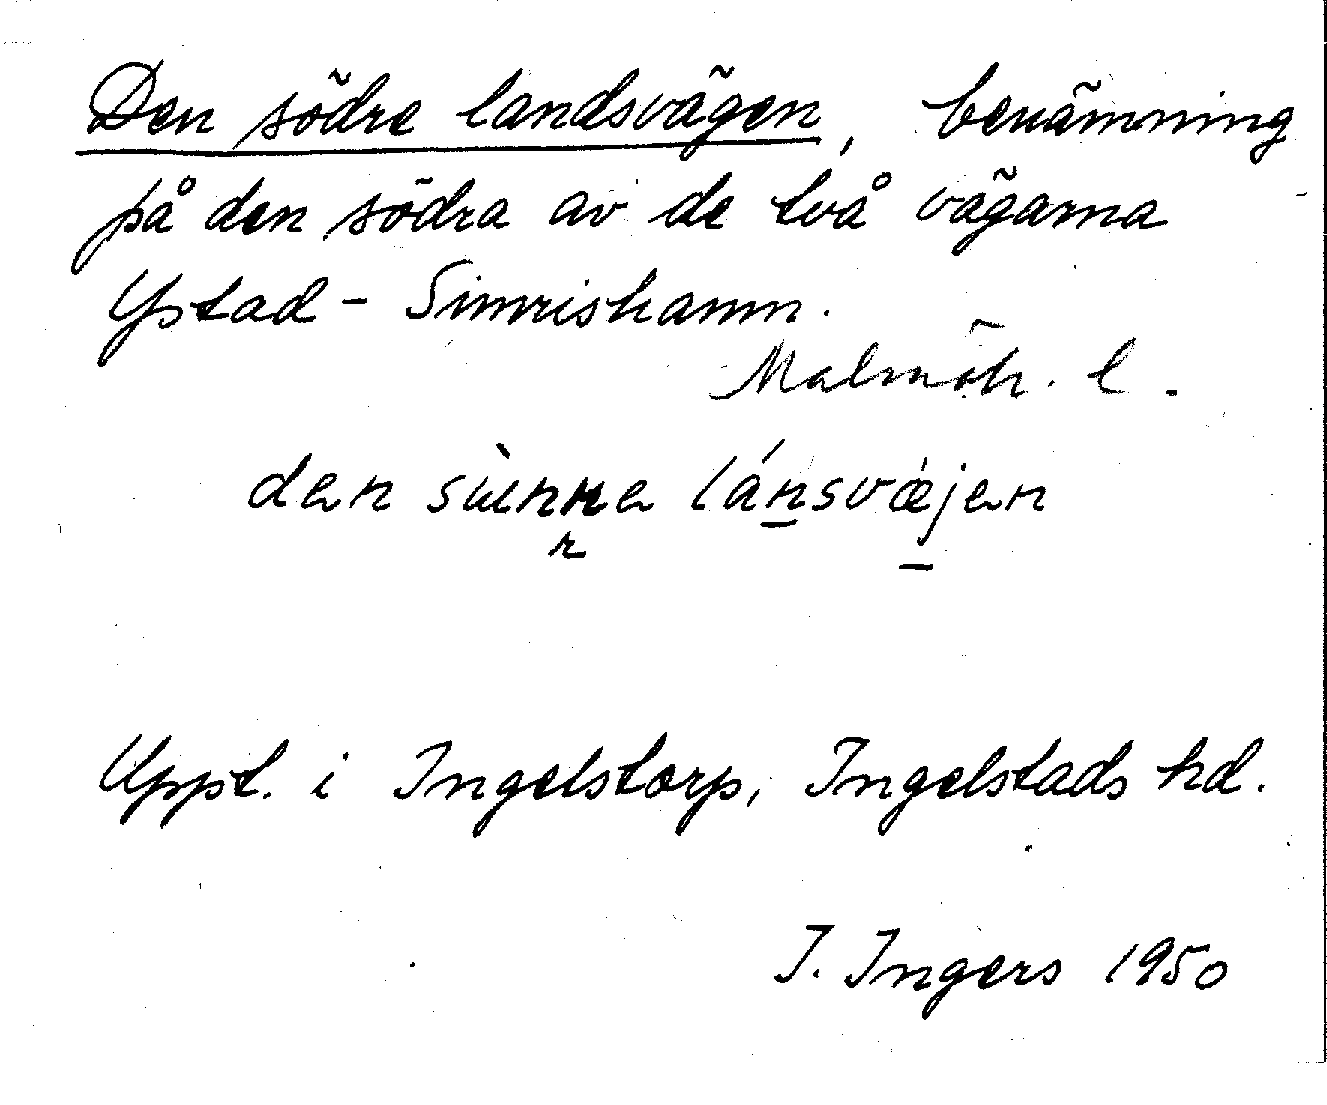 Den södre landsvägen, benämning
på den södra av de två vägarna
Ystad - Simrishamn.
Malmöh. l.
den sùnne lánsvæjen
Uppt. i Ingelstorp, Ingelstads hd.
I. Ingers 1950